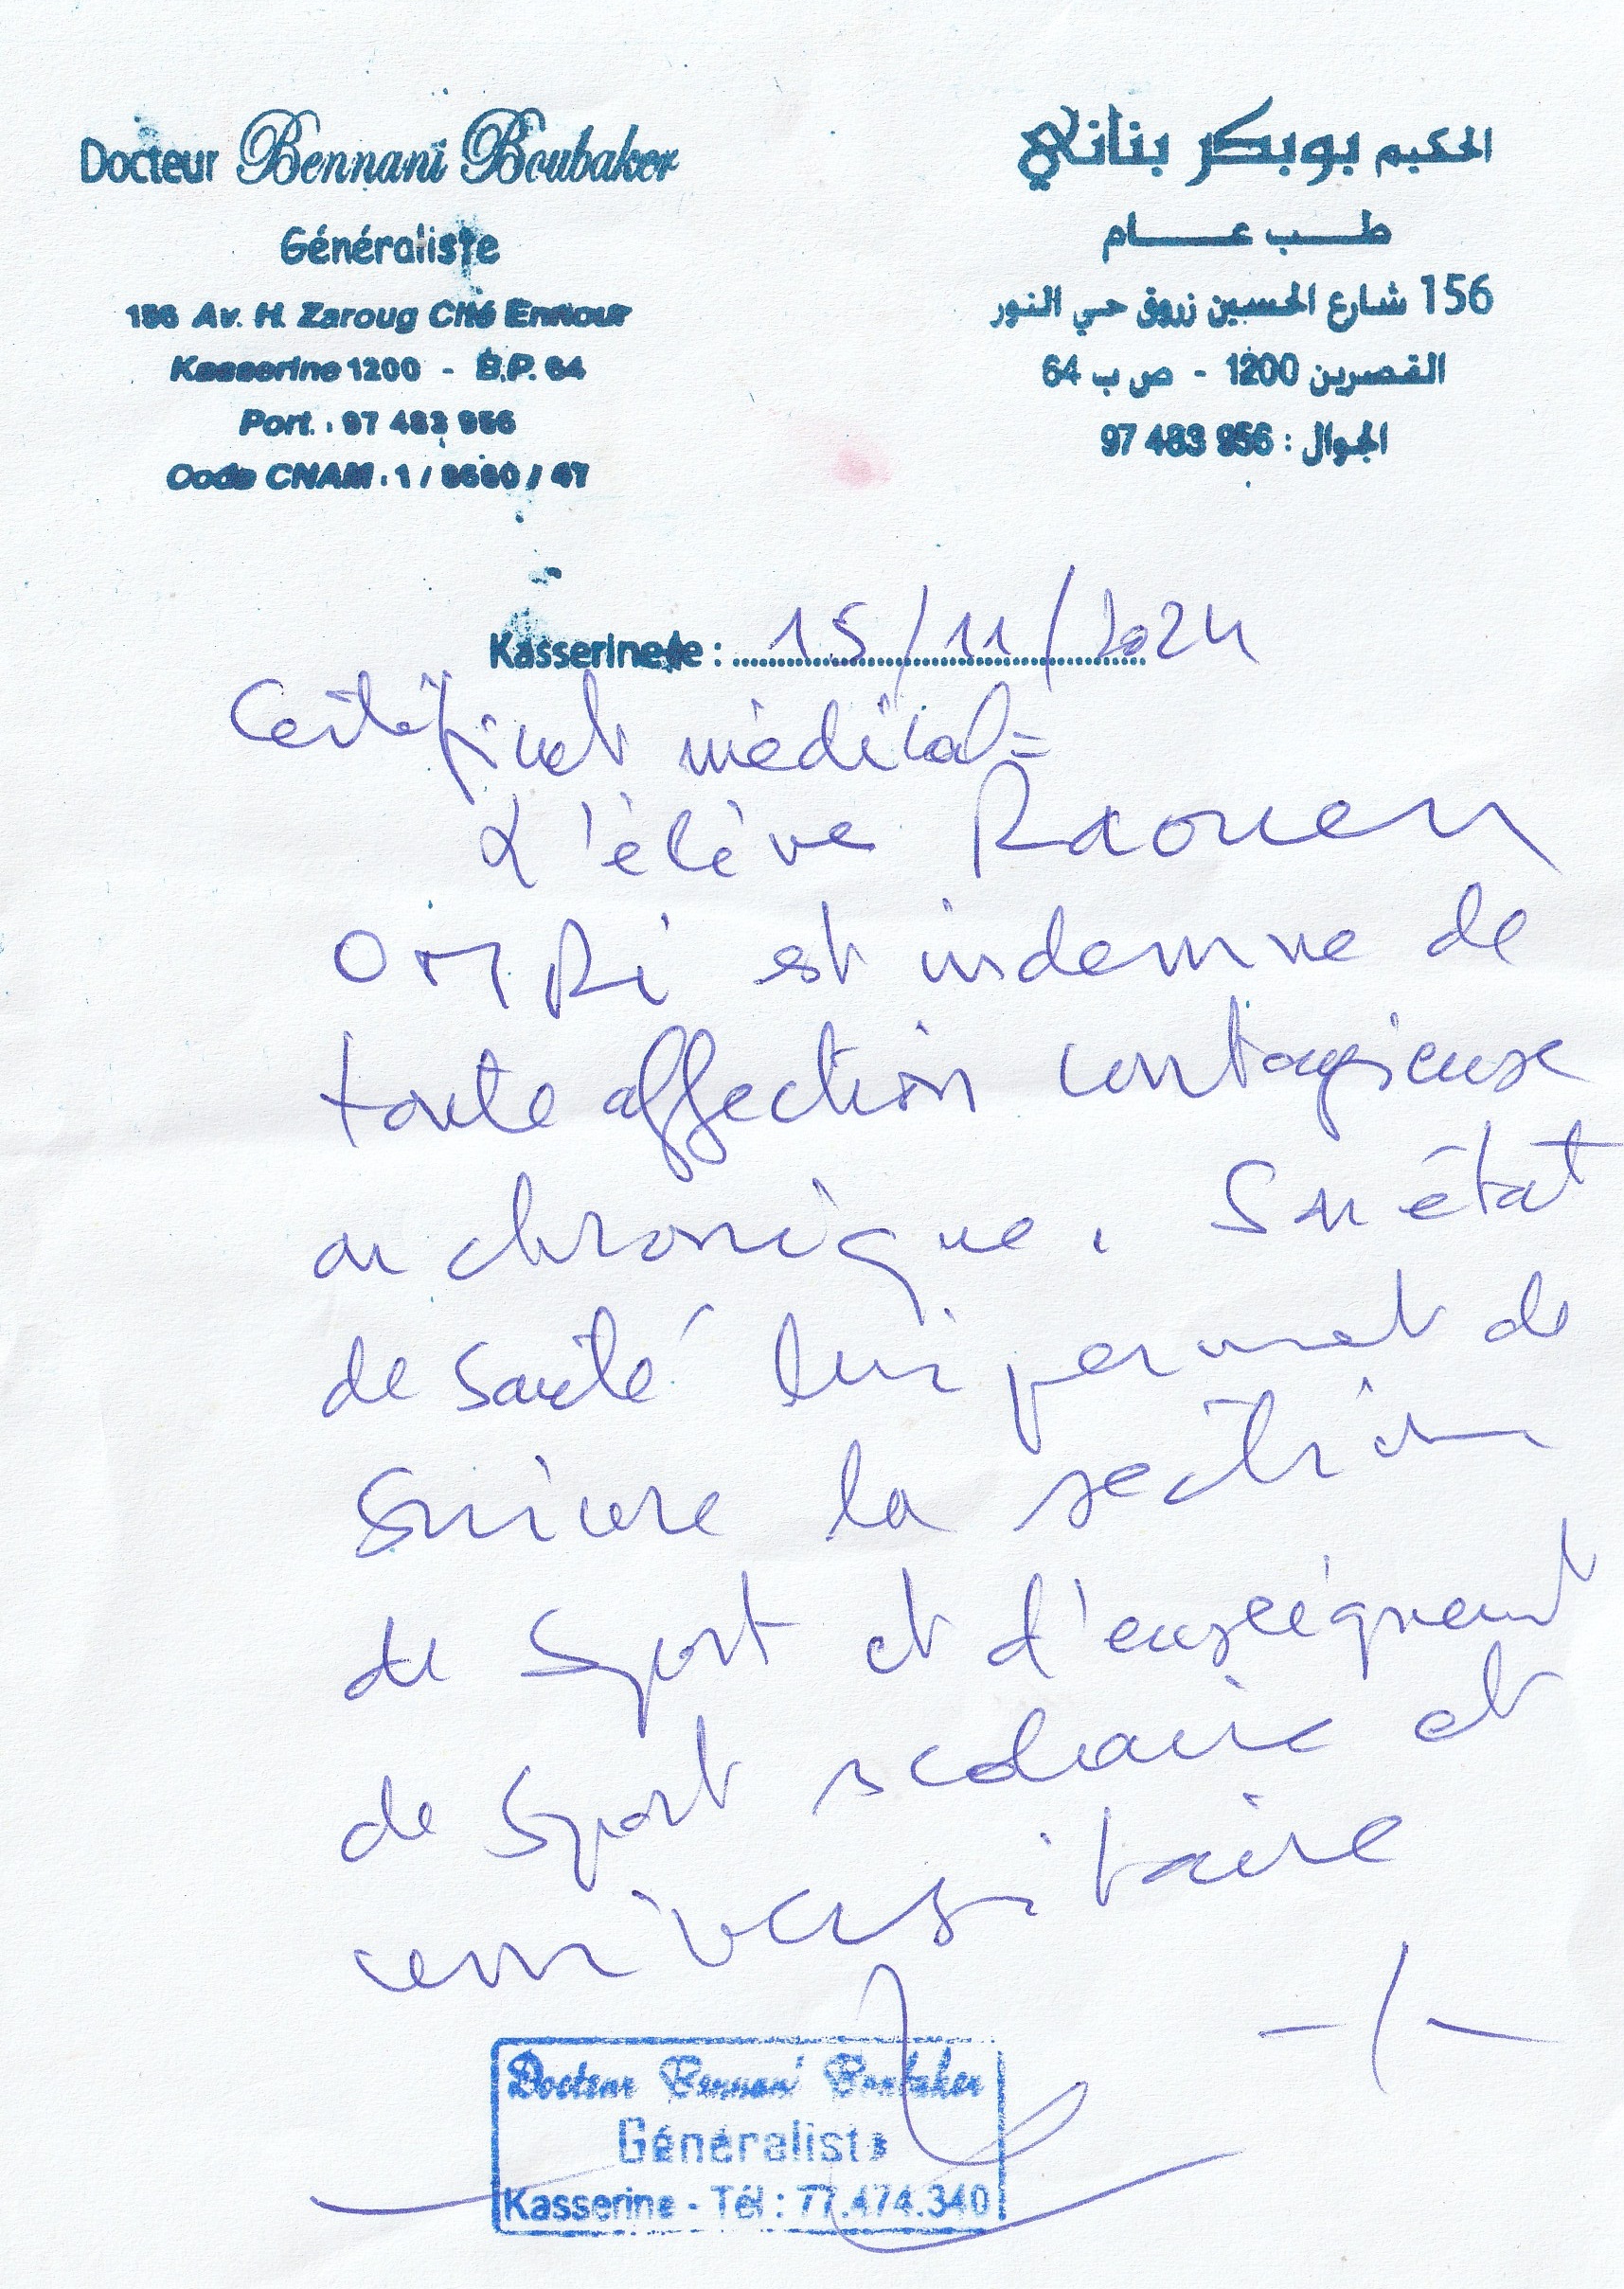 Docteur Bennani Boubaker
Généraliste
156 Av. H. Zaroug Cité Ennour
Kasserine 1200 - B.P. 64
Port. : 97 483 956
Code CNAM : 1 / / 47
الحكيم بوبكر بناني
طب عام
156 شارع الحسين زروق حي النور
القصرين 1200 - ص ب 64
الجوال : 97 483 956
Kasserine le : 15/11/2024
Certificat médical =
L'élève Raouen
OMRi est indemne de
toute affection contagieuse
ou chronique. Son état
de santé lui permet de
suivre la section
de sport et d'enseignement
de sport scolaire et
universitaire
-/-
Docteur Bennani Boubaker
Généraliste
Kasserine - Tél : 77.474.340